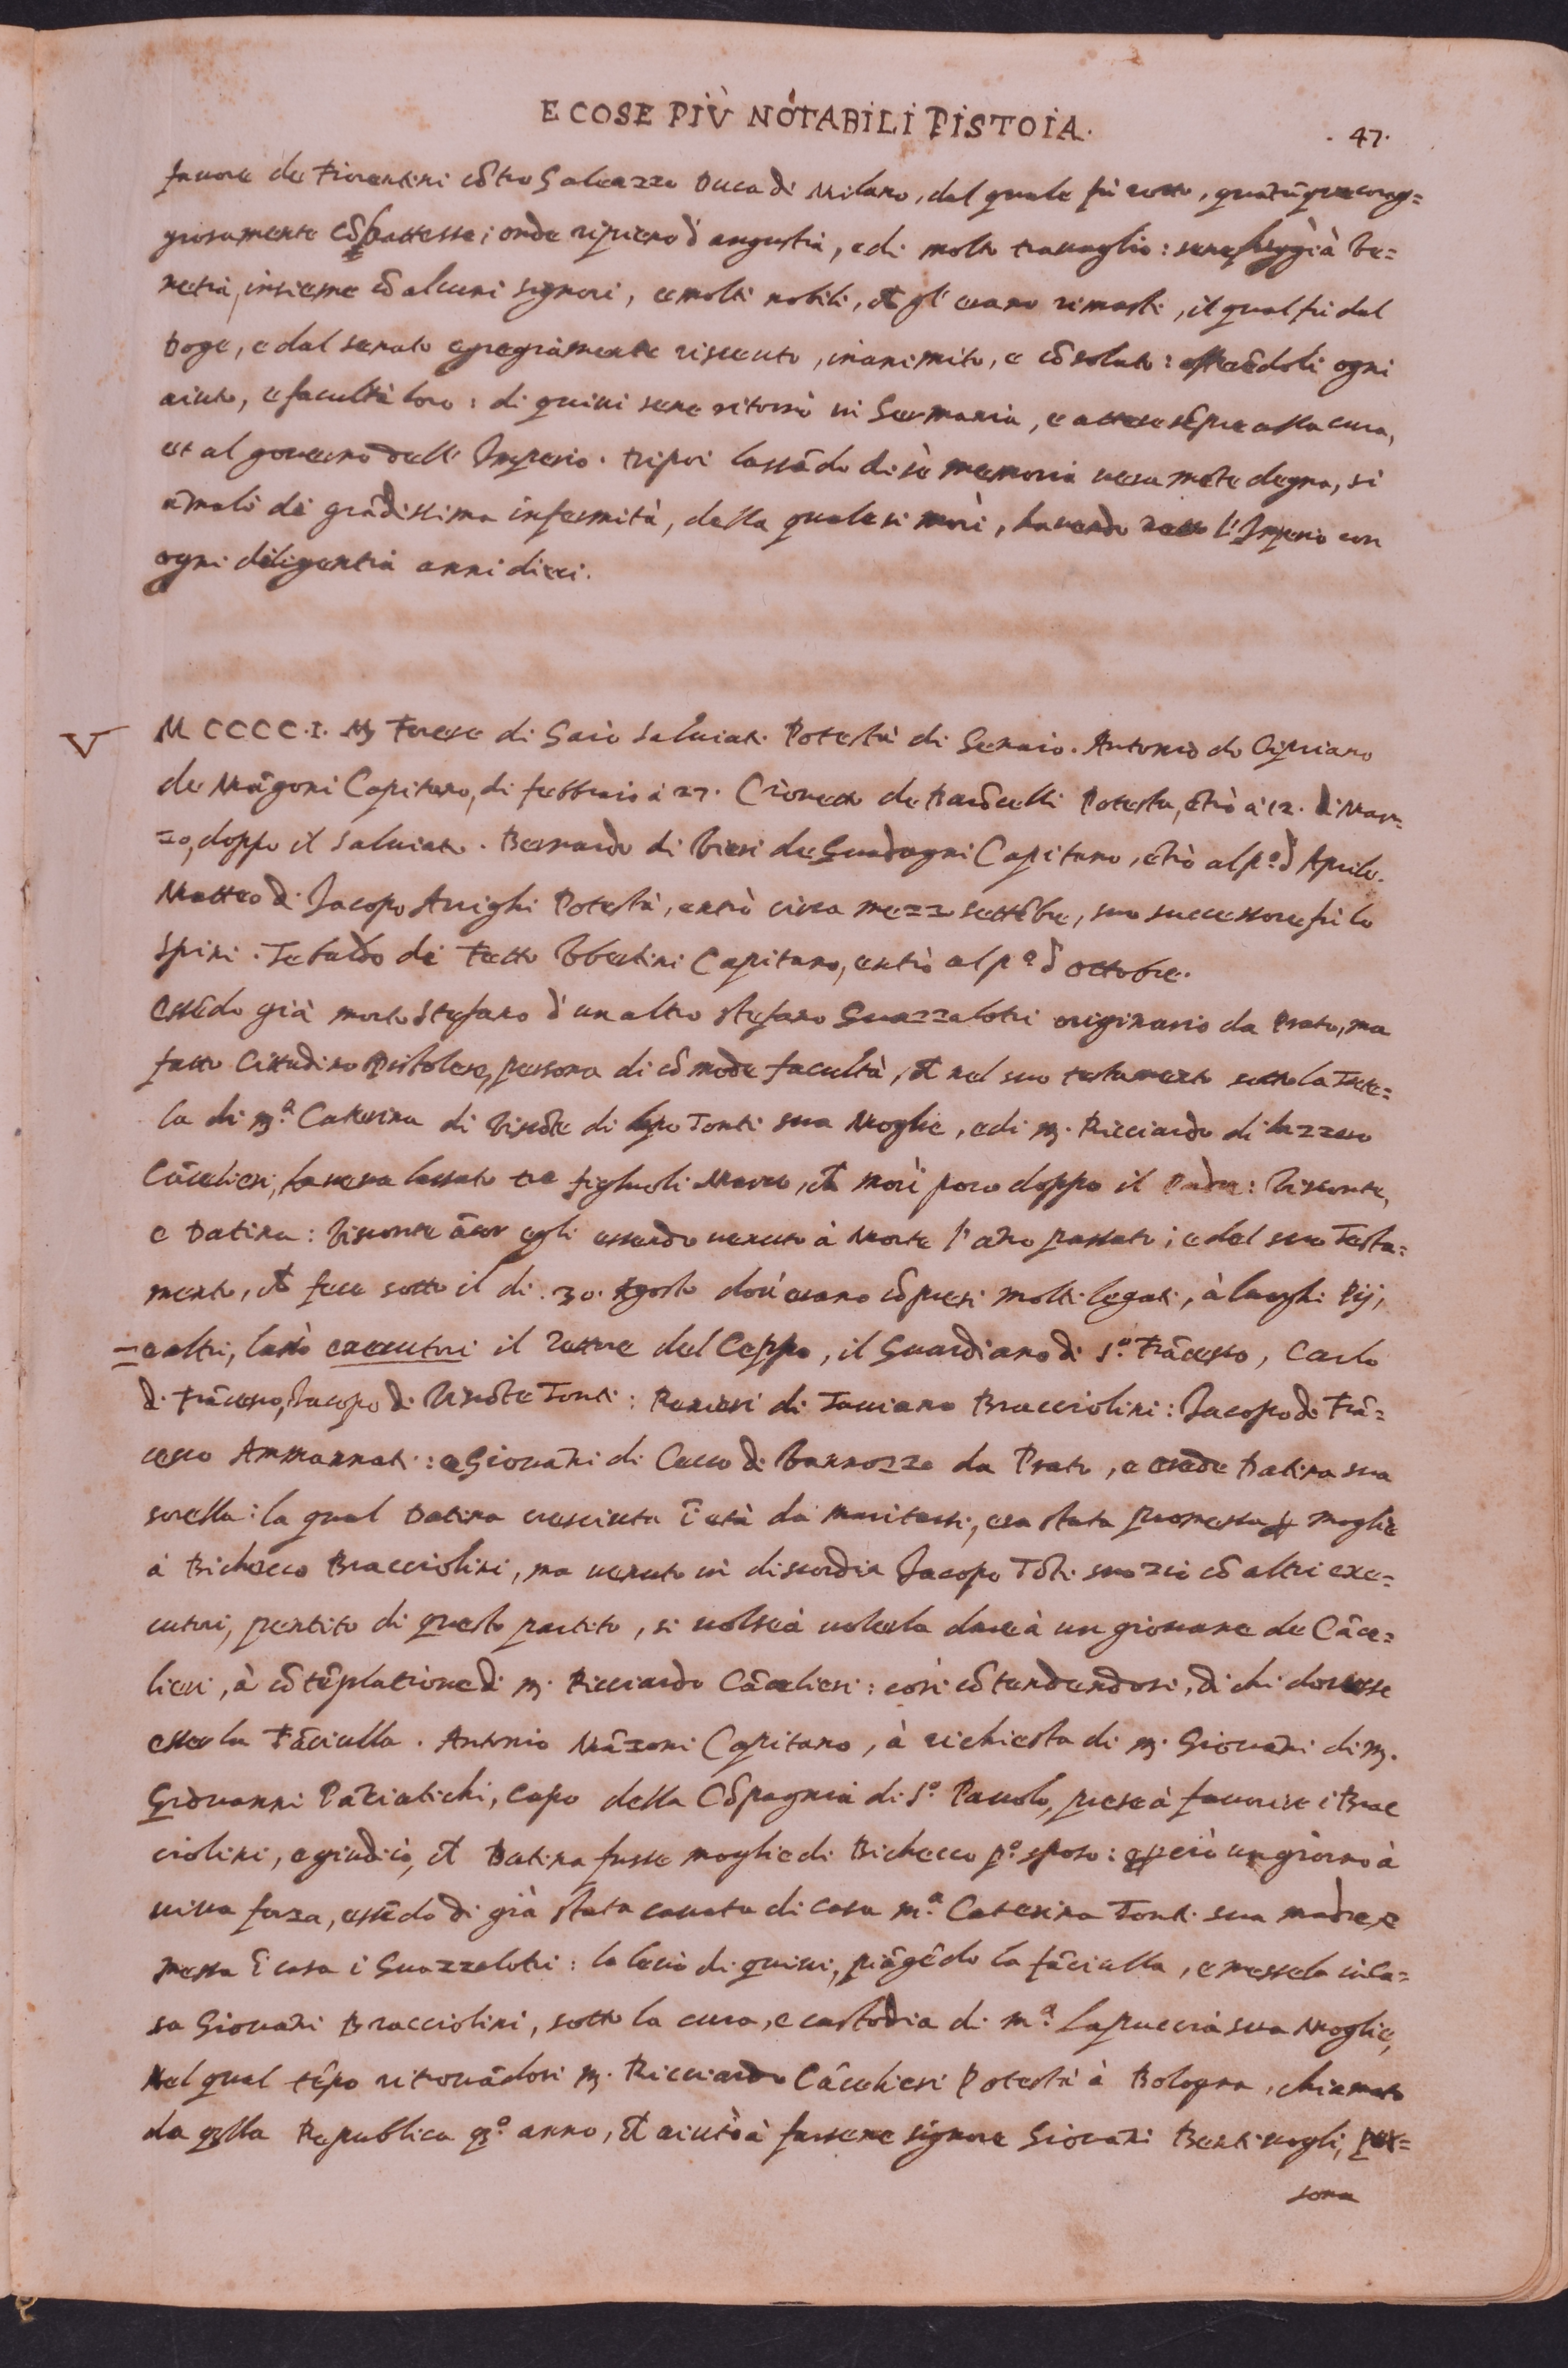 E COSE PIÙ NOTABILI PISTOIA.
. 47.
fauore de Fiorentini cõtro Galeazzo Duca di Milano, dal quale fù rotto, quãtũque corag=
giosamente cõbattesse; onde ripieno d'angustia, e di molto trauaglio: sene fuggi à Ve=
netia, insieme cõ alcuni signori, e molti nobili, ch gl'erano rimasti, il qual fù dal
Doge, e dal senato egregiamente riceuto, inanimito, e cõsolato: offerẽdoli ogni
aiuto, e facultà loro: di quiui sene ritornò in Germania, e attese sẽpre alla cura,
et al gouerno dell' Imperio. Dipoi lassãdo di sè memoria ueramẽte degna, si
amalò di grãdissima infermità, della quale si morì, hauendo retto l'Imperio con
ogni diligentia anni dieci.
V
M CCCC.I. M. Forese di Saluiati Potestà di Genaio. Antonio di Cipriano
de Mãgoni Capitano, di febbraio à 27. Cionetto de Potesta, ẽtrò à 12. di Mar=
zo, doppo il Saluiato. Bernardo di Vieri de Guadagni Capitano, ẽtrò al pº d'Aprile.
Matteo di Jacopo Arrighi Potestà, entrò circa mezzo settẽbre, suo successore fù lo
Spini. Tebaldo di Vbertini Capitano, entrò al pº d'octobre.
Essẽdo già morto Stefano d'un altro Stefano Guazzalotri originario da Prato, ma
fatto Cittadino Pistolese, persona di cõmode facultà, ch nel suo testamento sotto la Tute=
la di m.ª Caterina di Viscõte di Lapo Tonti sua Moglie, e di m. Ricciardo di Lazzero
Cãcelieri, haueua lassato tre figluoli Marco, ch morì poco doppo il Padre: Visconte,
e Datina: Visconte ãcor egli essendo uenuto à Morte l'ãno passato; e del suo Testa=
mento, ch fece sotto il di .30. Agosto dou'erano cõpresi molti legati, à luoghi Pij,
e altri, lassò executori il rettore del Ceppo, il Guardiano di S.º Frãcesco, Carlo
di Frãcesco, Jacopo di Viscõte Tonti: Ranieri di Bracciolini: Jacopo di Frã=
cesco Ammannati: e Giouãni di Cecco di Vannozzo da Prato, e erede Datina sua
sorella: la qual Datina cresciuta ĩ età da maritarsi, era stata promessa p moglie
à Bichecco Bracciolini, ma uenuto in discordia Jacopo Tõti suo zio cõ altri exe=
cutori, pentito di questo partito, si uolse à uolerla dare à un giouane de Cãce=
lieri, à cõtẽplatione di m. Ricciardo Cãcelieri: così cõtendendosi, di chi douesse
esser la Fãciulla. Antonio Mãzoni Capitano, à richiesta di m. Giouãni di m.
Giouanni Pãciatichi, capo della Cõpagnia di S.º Pauolo, prese à fauorire i Brac
ciolini, e giudicò, ch Datina fusse moglie di Bichecco pº sposo: e però un giorno à
uiua forza, essẽdo di già stata cauata di casa m.ª Caterina Tonti sua madre, e
messa ĩ casa i Guazzalotri: la leuò di quiui, piãgẽdo la fãciulla, e messela in ca=
sa Giouãni Bracciolini, sotto la cura, e custodia di m.ª Lapuccia sua Moglie,
Nel qual tẽpo ritrouãdosi m. Ricciardo Cãcelieri Potestà à Bologna, chiamato
da qlla Republica qº anno, ch aiutò à farsene signore Giouãni Bentiuogli, per=
sona